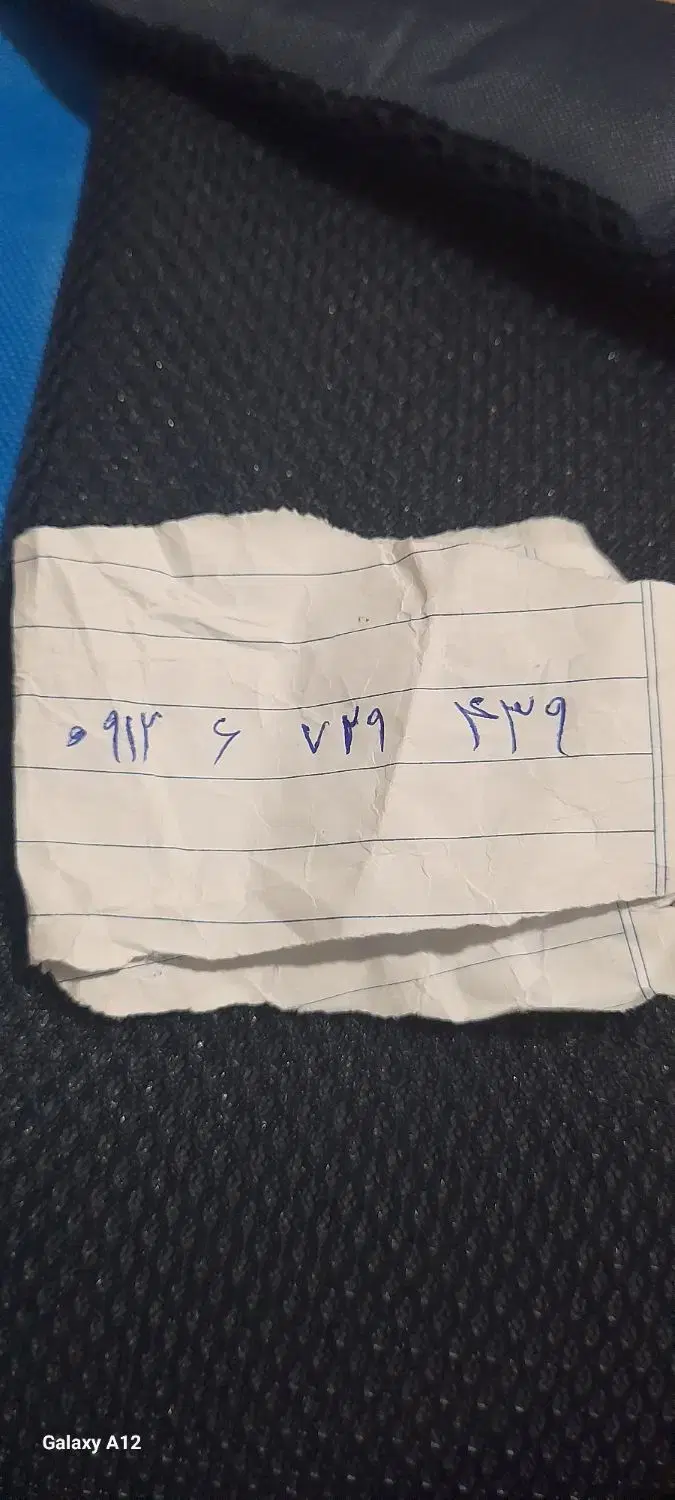 ۰۹۱۲ ۶ ۷۲۹ ۴۳۹
Galaxy A12